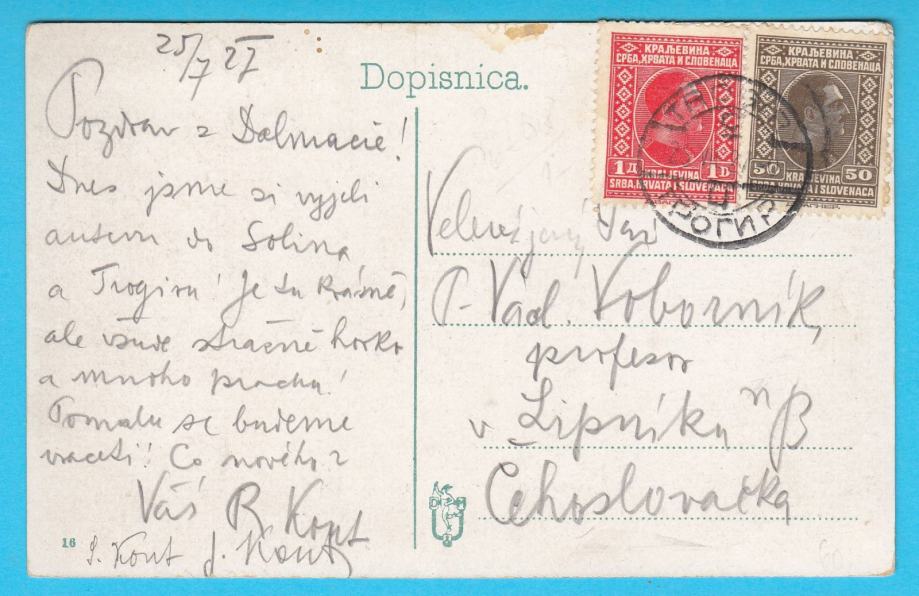 25/7 27
Dopisnica.
Pozdrav z Dalmacie!
Dnes jsme si vyjeli
autem do Solina
a Trogiru! Je tu krásně,
ale všude strašné horko
a mnoho prachu!
Pomalu se budeme
vraceti! Co nového?
Váš R Kont
J. Kont
16
КРАЉЕВИНА
СРБА, ХРВАТА И СЛОВЕНАЦА
1Д 1D
KRALJEVINA
SRBA, HRVATA I SLOVENACA
КРАЉЕВИНА
СРБА, ХРВАТА И СЛОВЕНАЦА
50 50
KRALJEVINA
SRBA, HRVATA I SLOVENACA
ТРОГИР
Velectěný Pan
P. Vlad. Voborník,
profesor
v Lipníku n B
Čehoslovačka